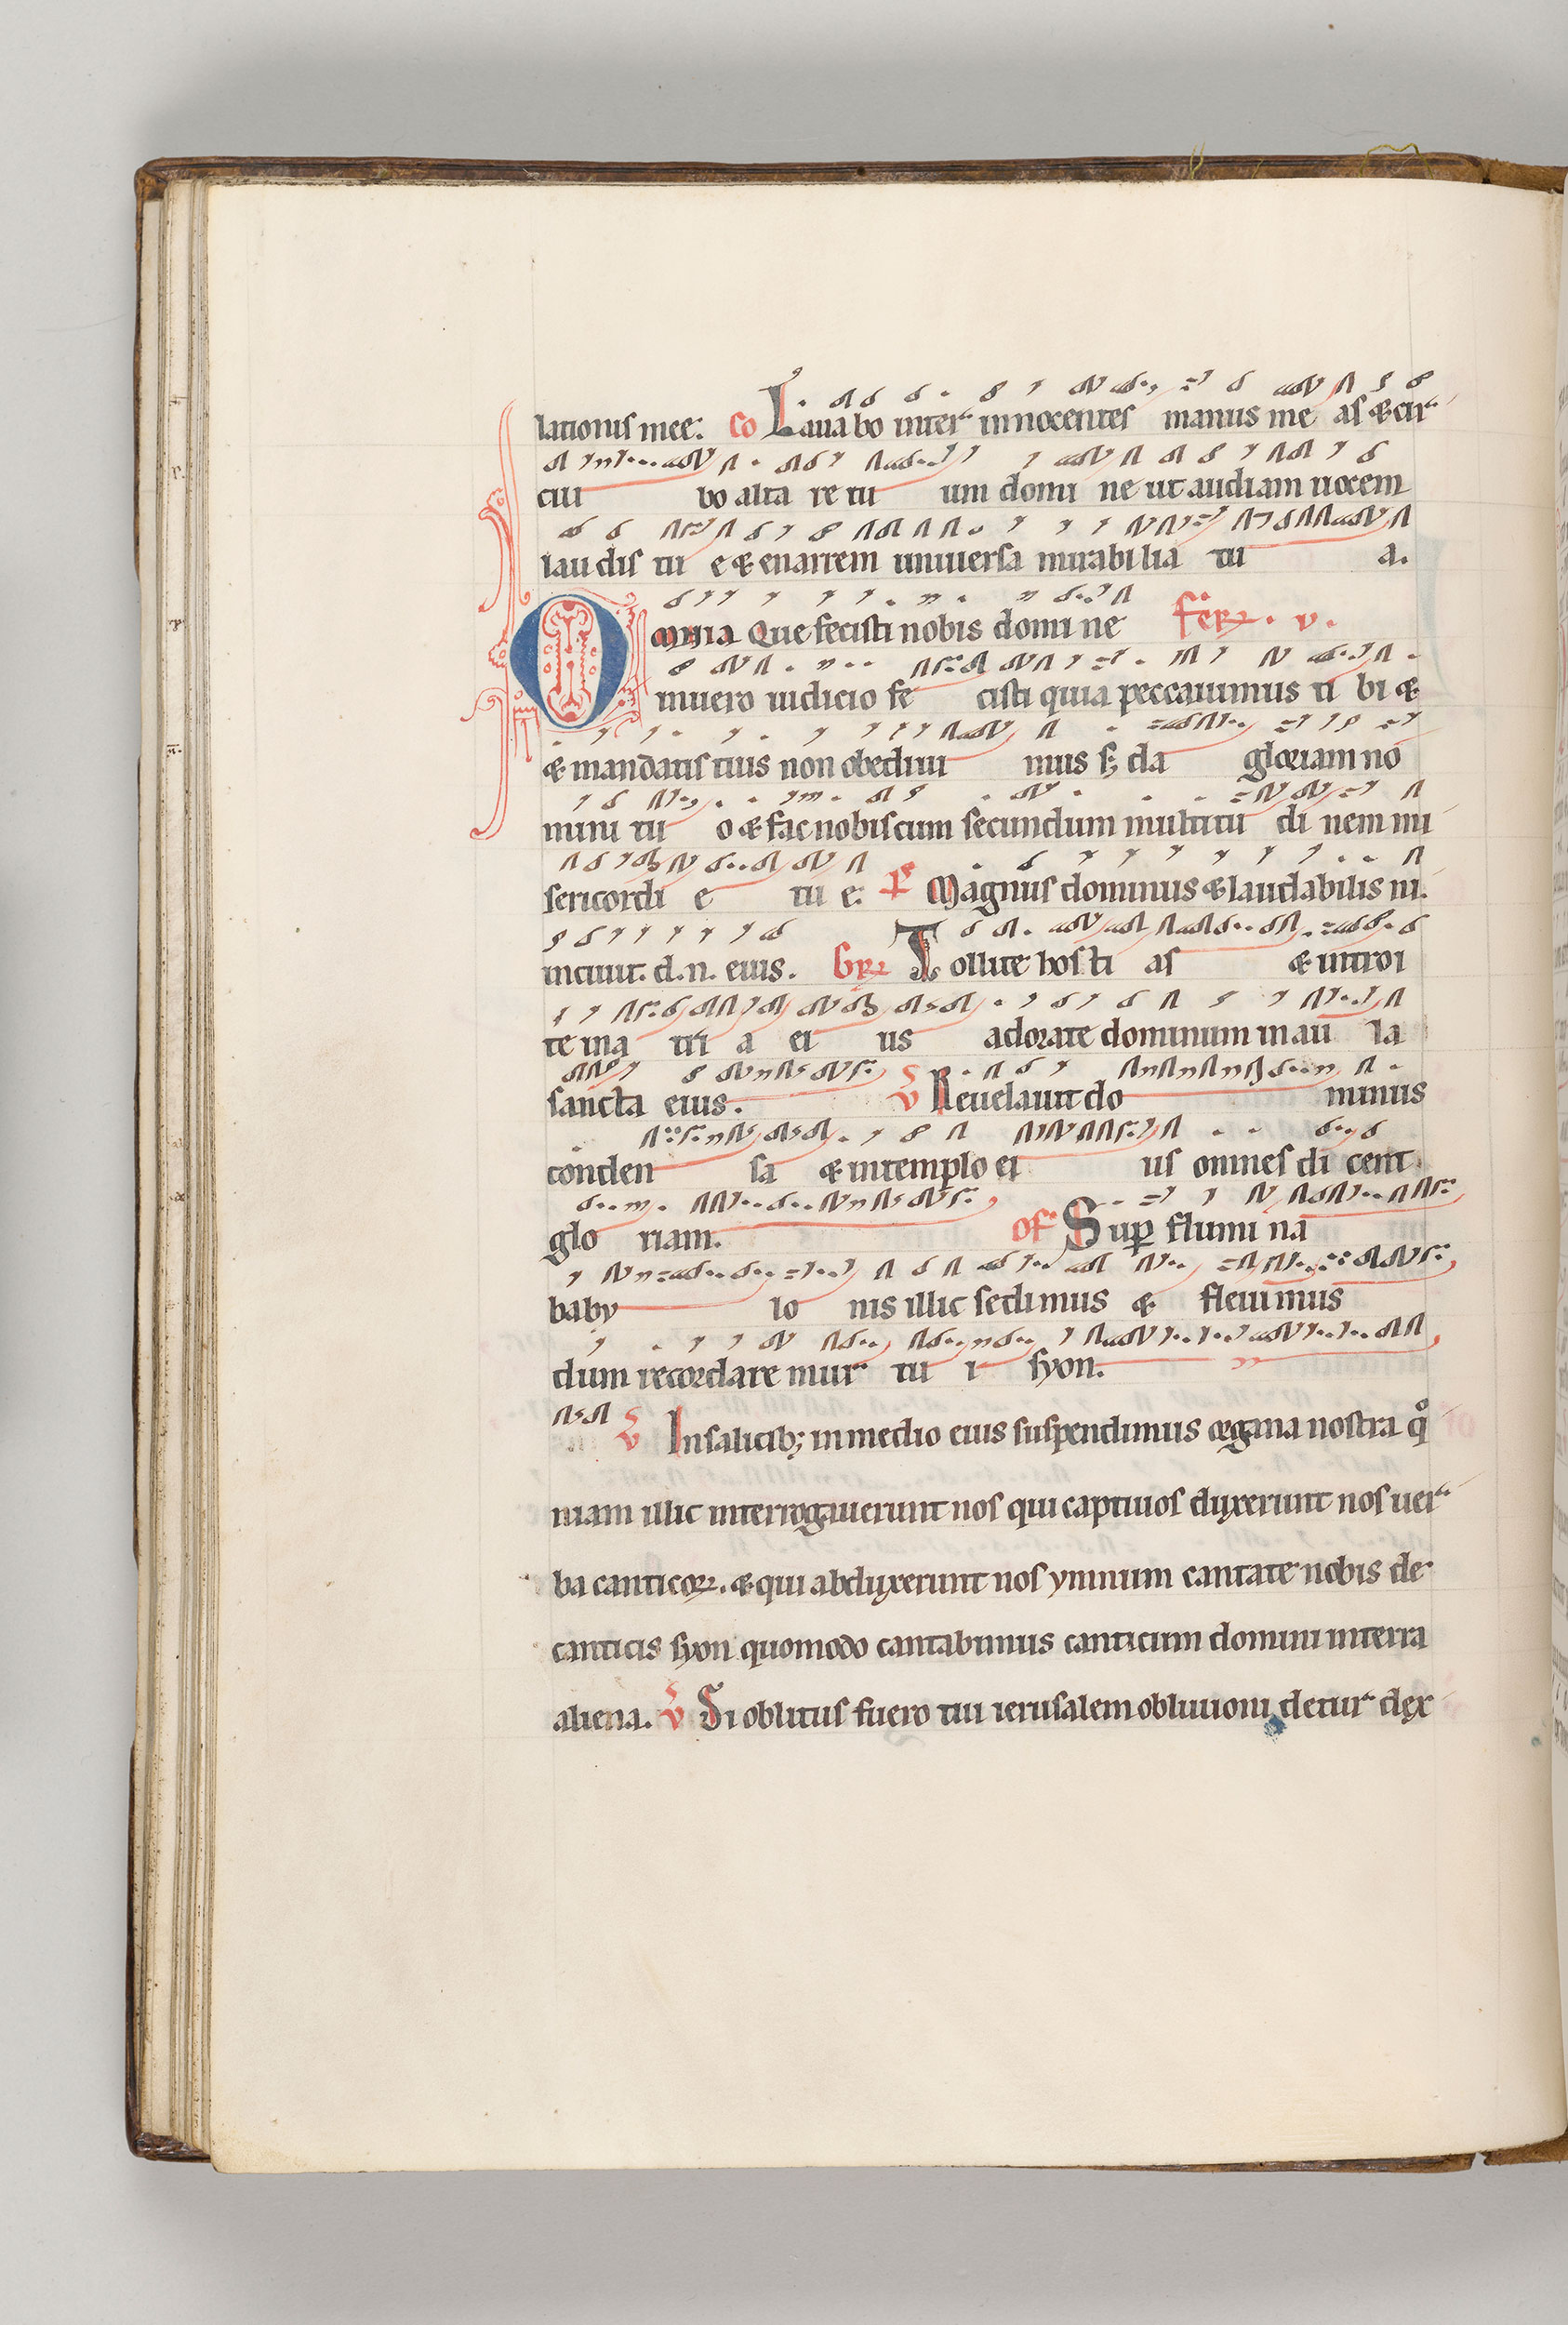 lationis mee: co Lauabo inter innocentes manus me as & cir
cui bo alta re tu um domi ne ut audiam uocem
lau dis tu e & enarrem uniuersa mirabi lia tu a.
Omnia que fecisti nobis domi ne fer. v.
in uero iudicio fe cisti quia peccauimus ti bi &
& mandatis tuis non obediui mus s; da gloriam no
mini tu o & fac nobiscum secundum multitu di nem mi
sericordi e tu e: p͂s Magnus dominus & laudabilis ni.
in ciuit. d. n. eius. Gr Tollite hos ti as & introi
te in a tri a ei us adorate dominum in au la
sancta eius. v Reuelauit do minus
conden sa & in templo ei us omnes di cent
glo riam. of Sup flumi na
baby lo nis illic sedimus & fleuimus
dum recordare mur tu i syon.
v In salicib; in medio eius suspendimus organa nostra qo
niam illic interrogauerunt nos qui captiuos duxerunt nos uer
ba canticoꝝ. & qui abduxerunt nos ymnum cantate nobis de
canticis syon quomodo cantabimus canticum domini in terra
aliena. v Si oblitus fuero tui ierusalem obliuioni detur dex